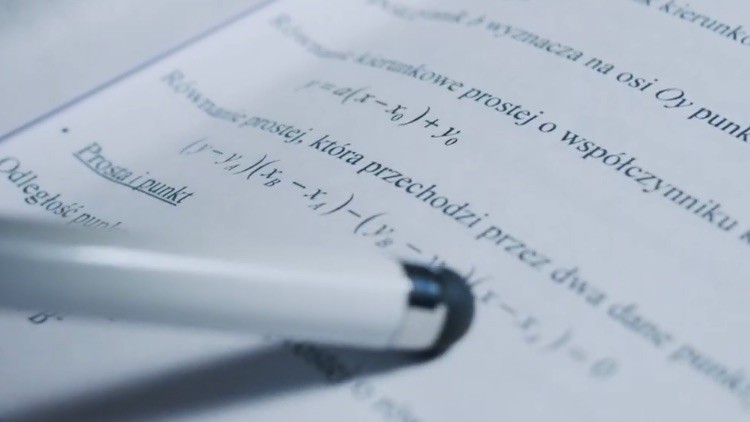 kierunko
b wyznacza na osi Oy punk
Równanie kierunkowe prostej o współczynniku k
y = a(x − x₀) + y₀
Równanie prostej, która przechodzi przez dwa dane punk
(y − y_A)(x_B − x_A) − (y_B − y )(x − x_A) = 0
• Prosta i punkt
Odległość punk
B